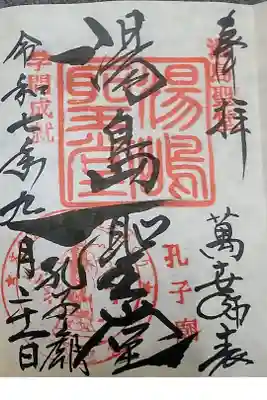 奉拝
萬世師表
孔子廟
湯島聖堂
湯嶋聖堂
孔子廟
学問成就
令和七年九月二十一日